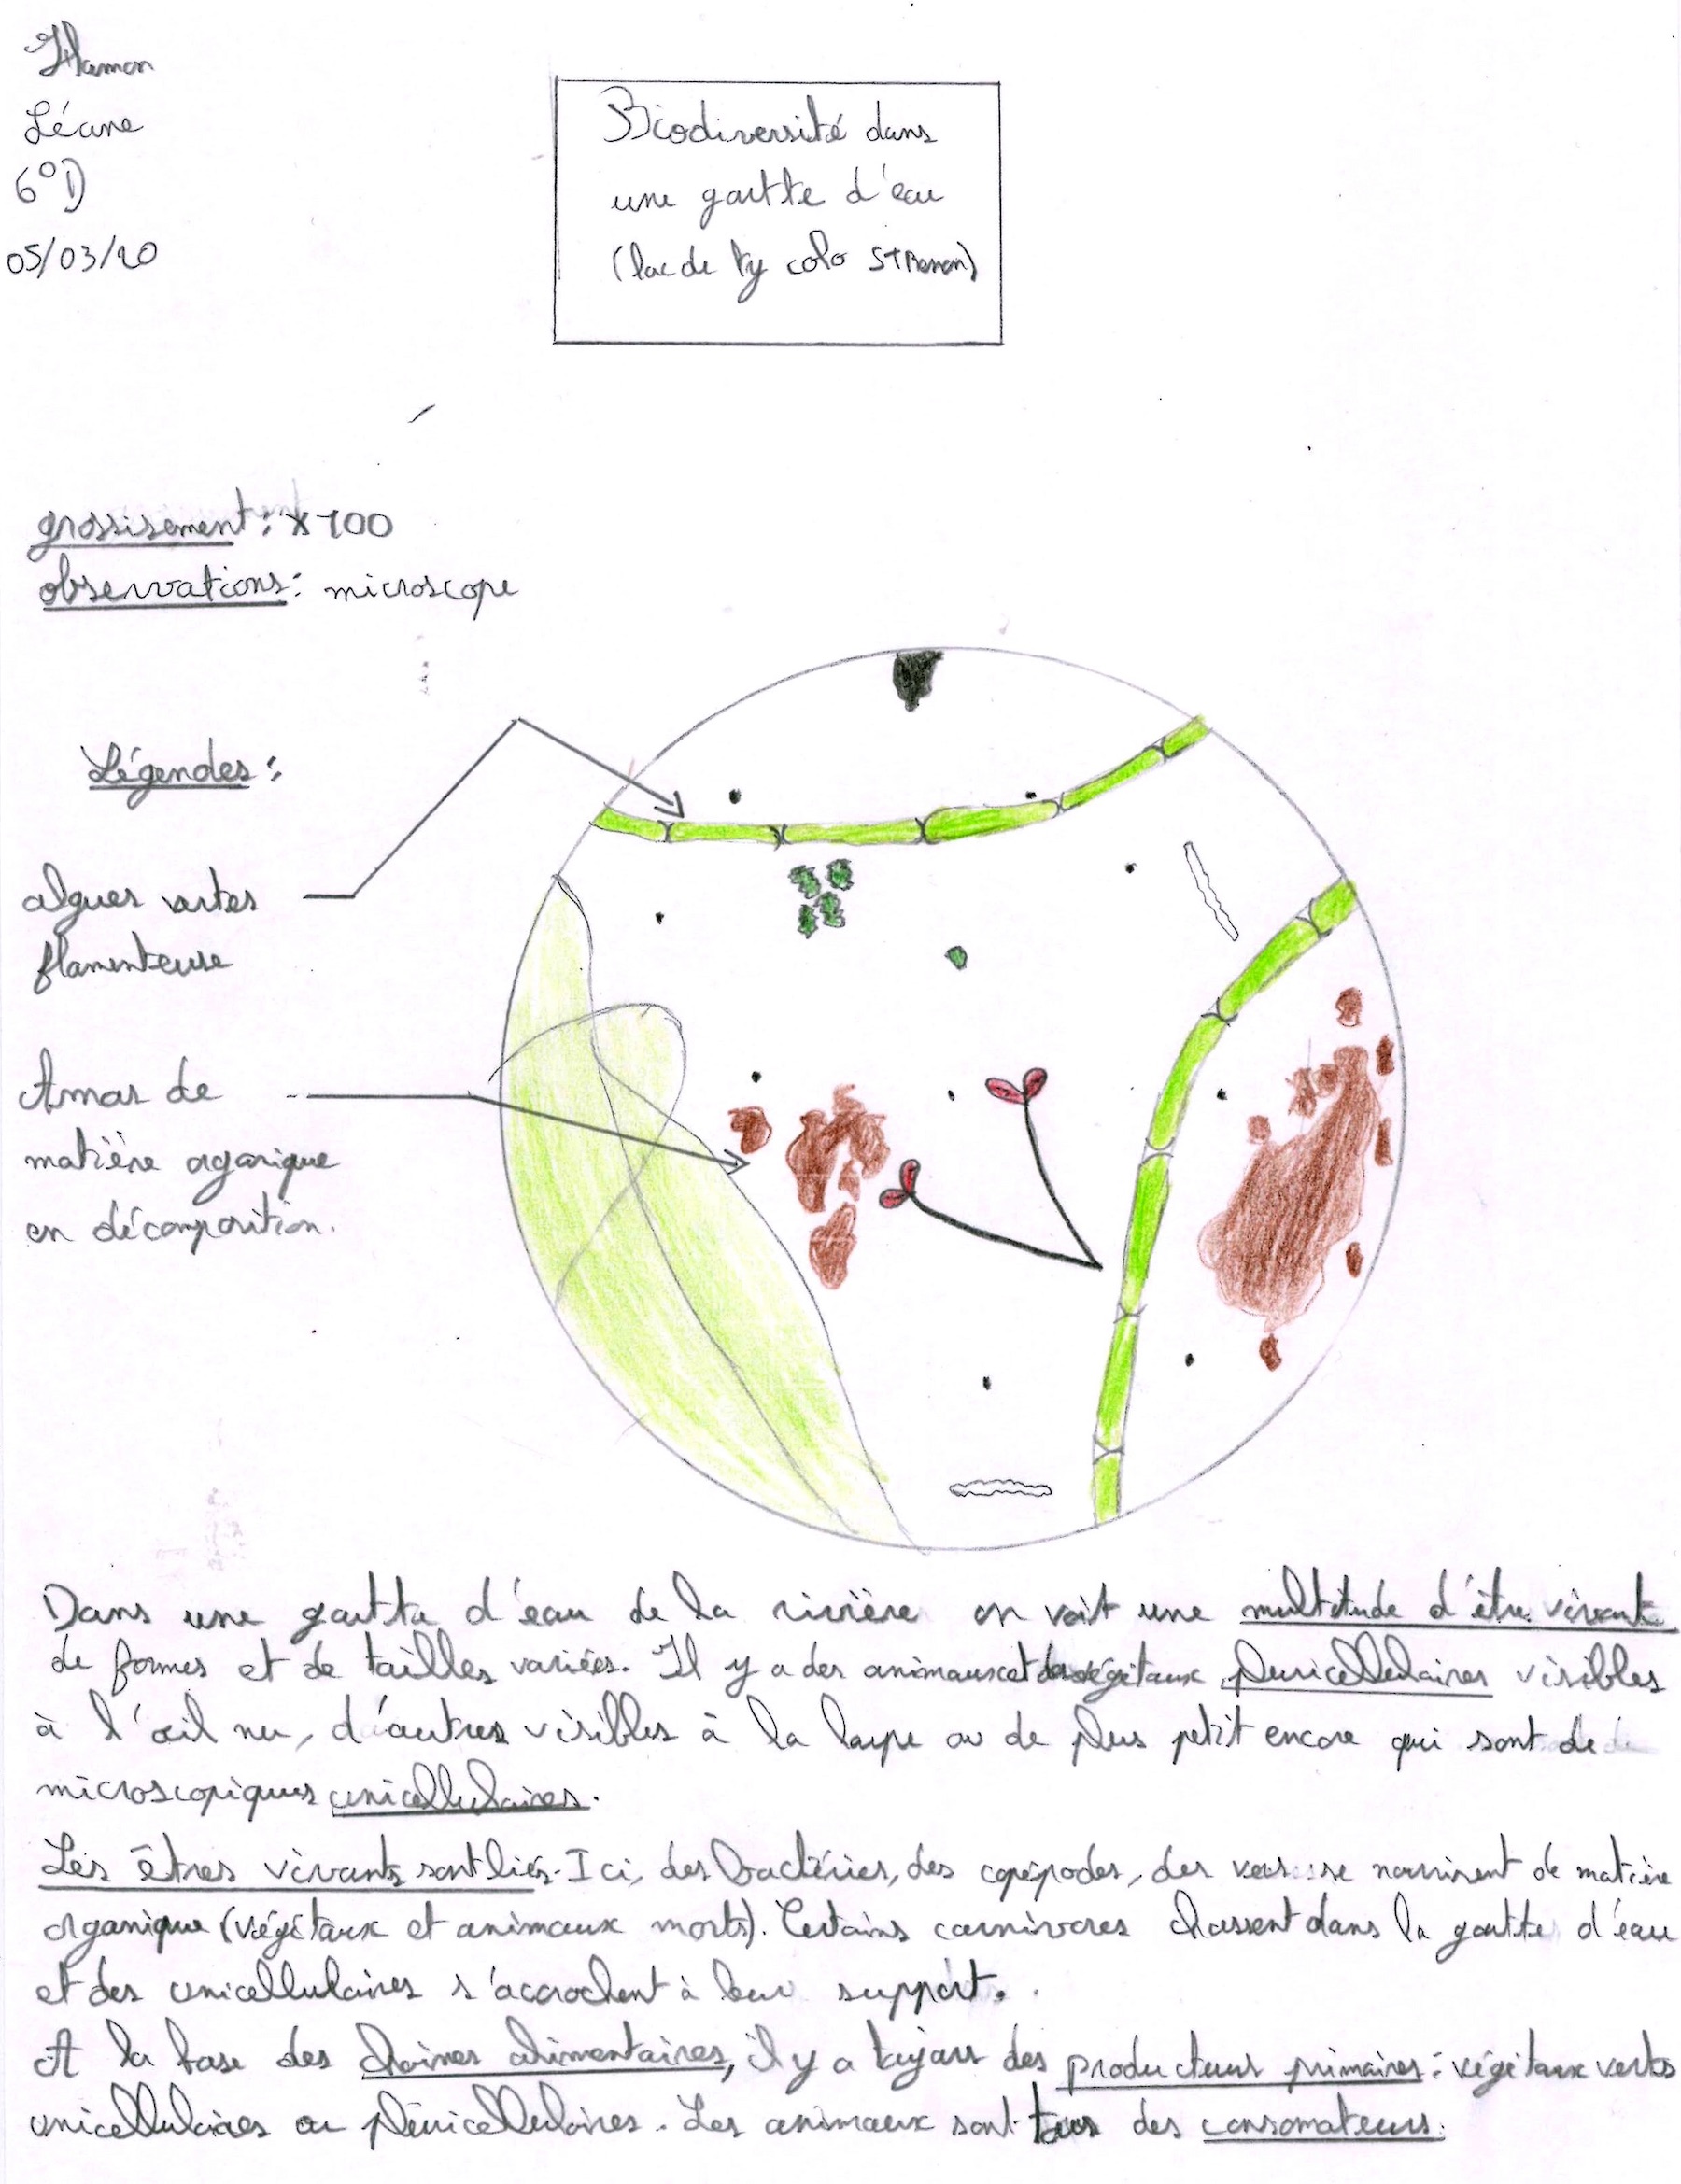 Hamon
Léane
6°D
05/03/20
Biodiversité dans
une goutte d'eau
(lac de ty colo ST Renan)
grossisement : x 100
observations : microscope
Légendes :
algues vertes
flamenteuse
Amas de
matière organique
en décomposition.
Dans une goutte d'eau de la rivière on voit une multitude d'être vivant
de formes et de tailles variées. Il y a des animaux et des végétaux pluricellulaires visibles
à l'œil nu, d'autres visibles à la loupe ou de plus petit encore qui sont de
microscopiques unicellulaires.
Les êtres vivants sont liés. Ici, des bactéries, des copépodes, des vers se nourrisent de matière
organique (végétaux et animaux morts). Certains carnivores chassent dans la goutte d'eau
et des unicellulaires s'accrochent à leur support.
A la base des chaines alimentaires, il y a toujours des producteurs primaires : végétaux verts
unicellulaires ou pluricellulaires. Les animaux sont tous des consomateurs.